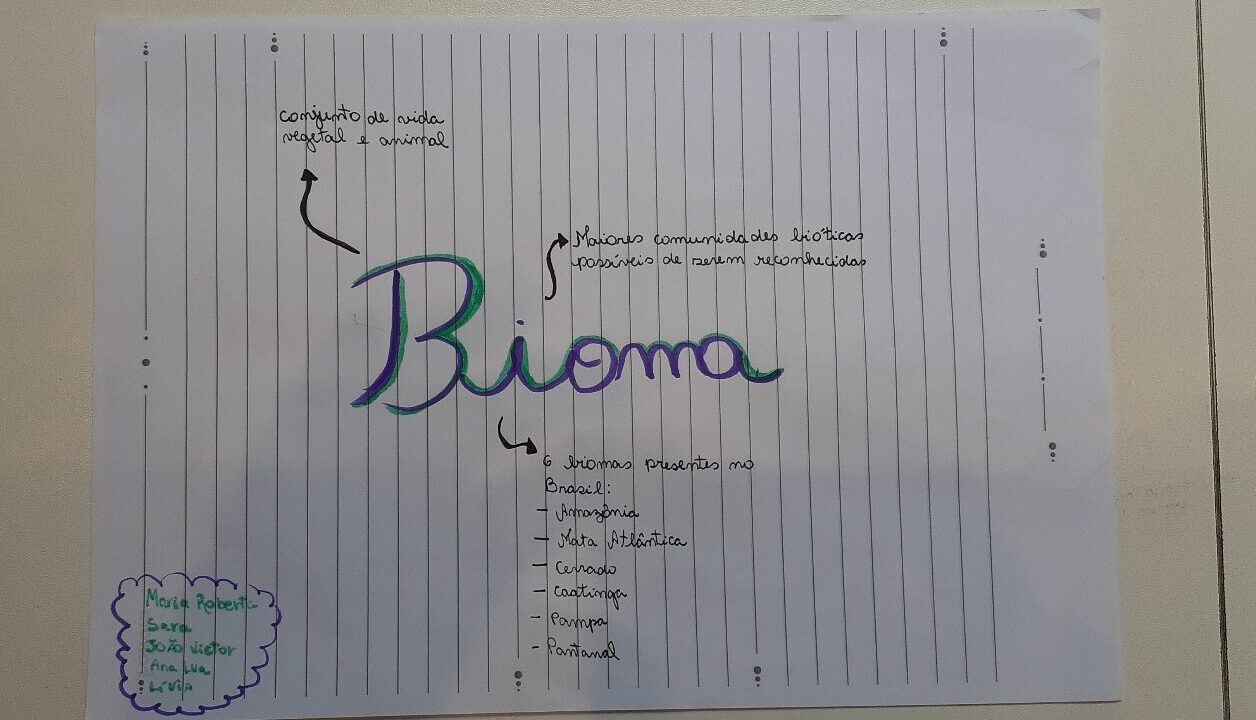 conjunto de vida
vegetal e animal
Maiores comunidades bióticas
possíveis de serem reconhecidas
Bioma
6 biomas presentes no
Brasil:
- Amazônia
- Mata Atlântica
- Cerrado
- Caatinga
- Pampa
- Pantanal
Maria Roberta
Sara
JOÃO Victor
Ana Lua
Lívia